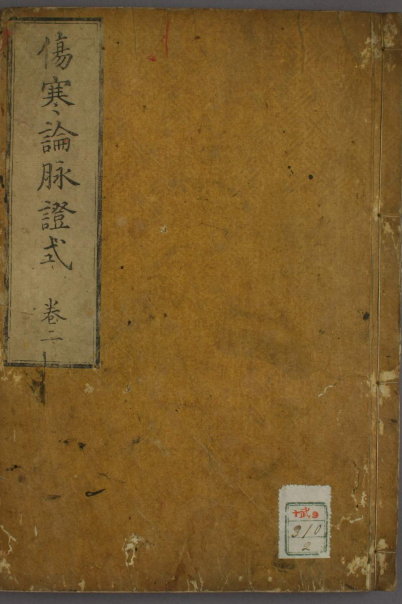 傷寒論脉證式 卷二
910
2